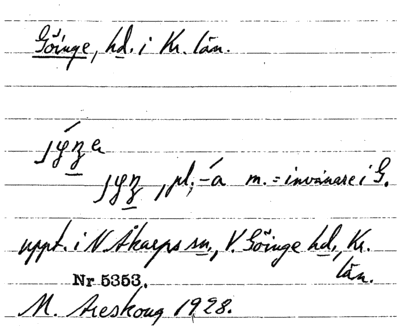 Göinge, hd. i Kr. län.
pl. -a m. = invånare i G.
uppt. i N Åkarps sn, V. Göinge hd, Kr.
län.
Nr 5353.
M. Areskoug 1928.